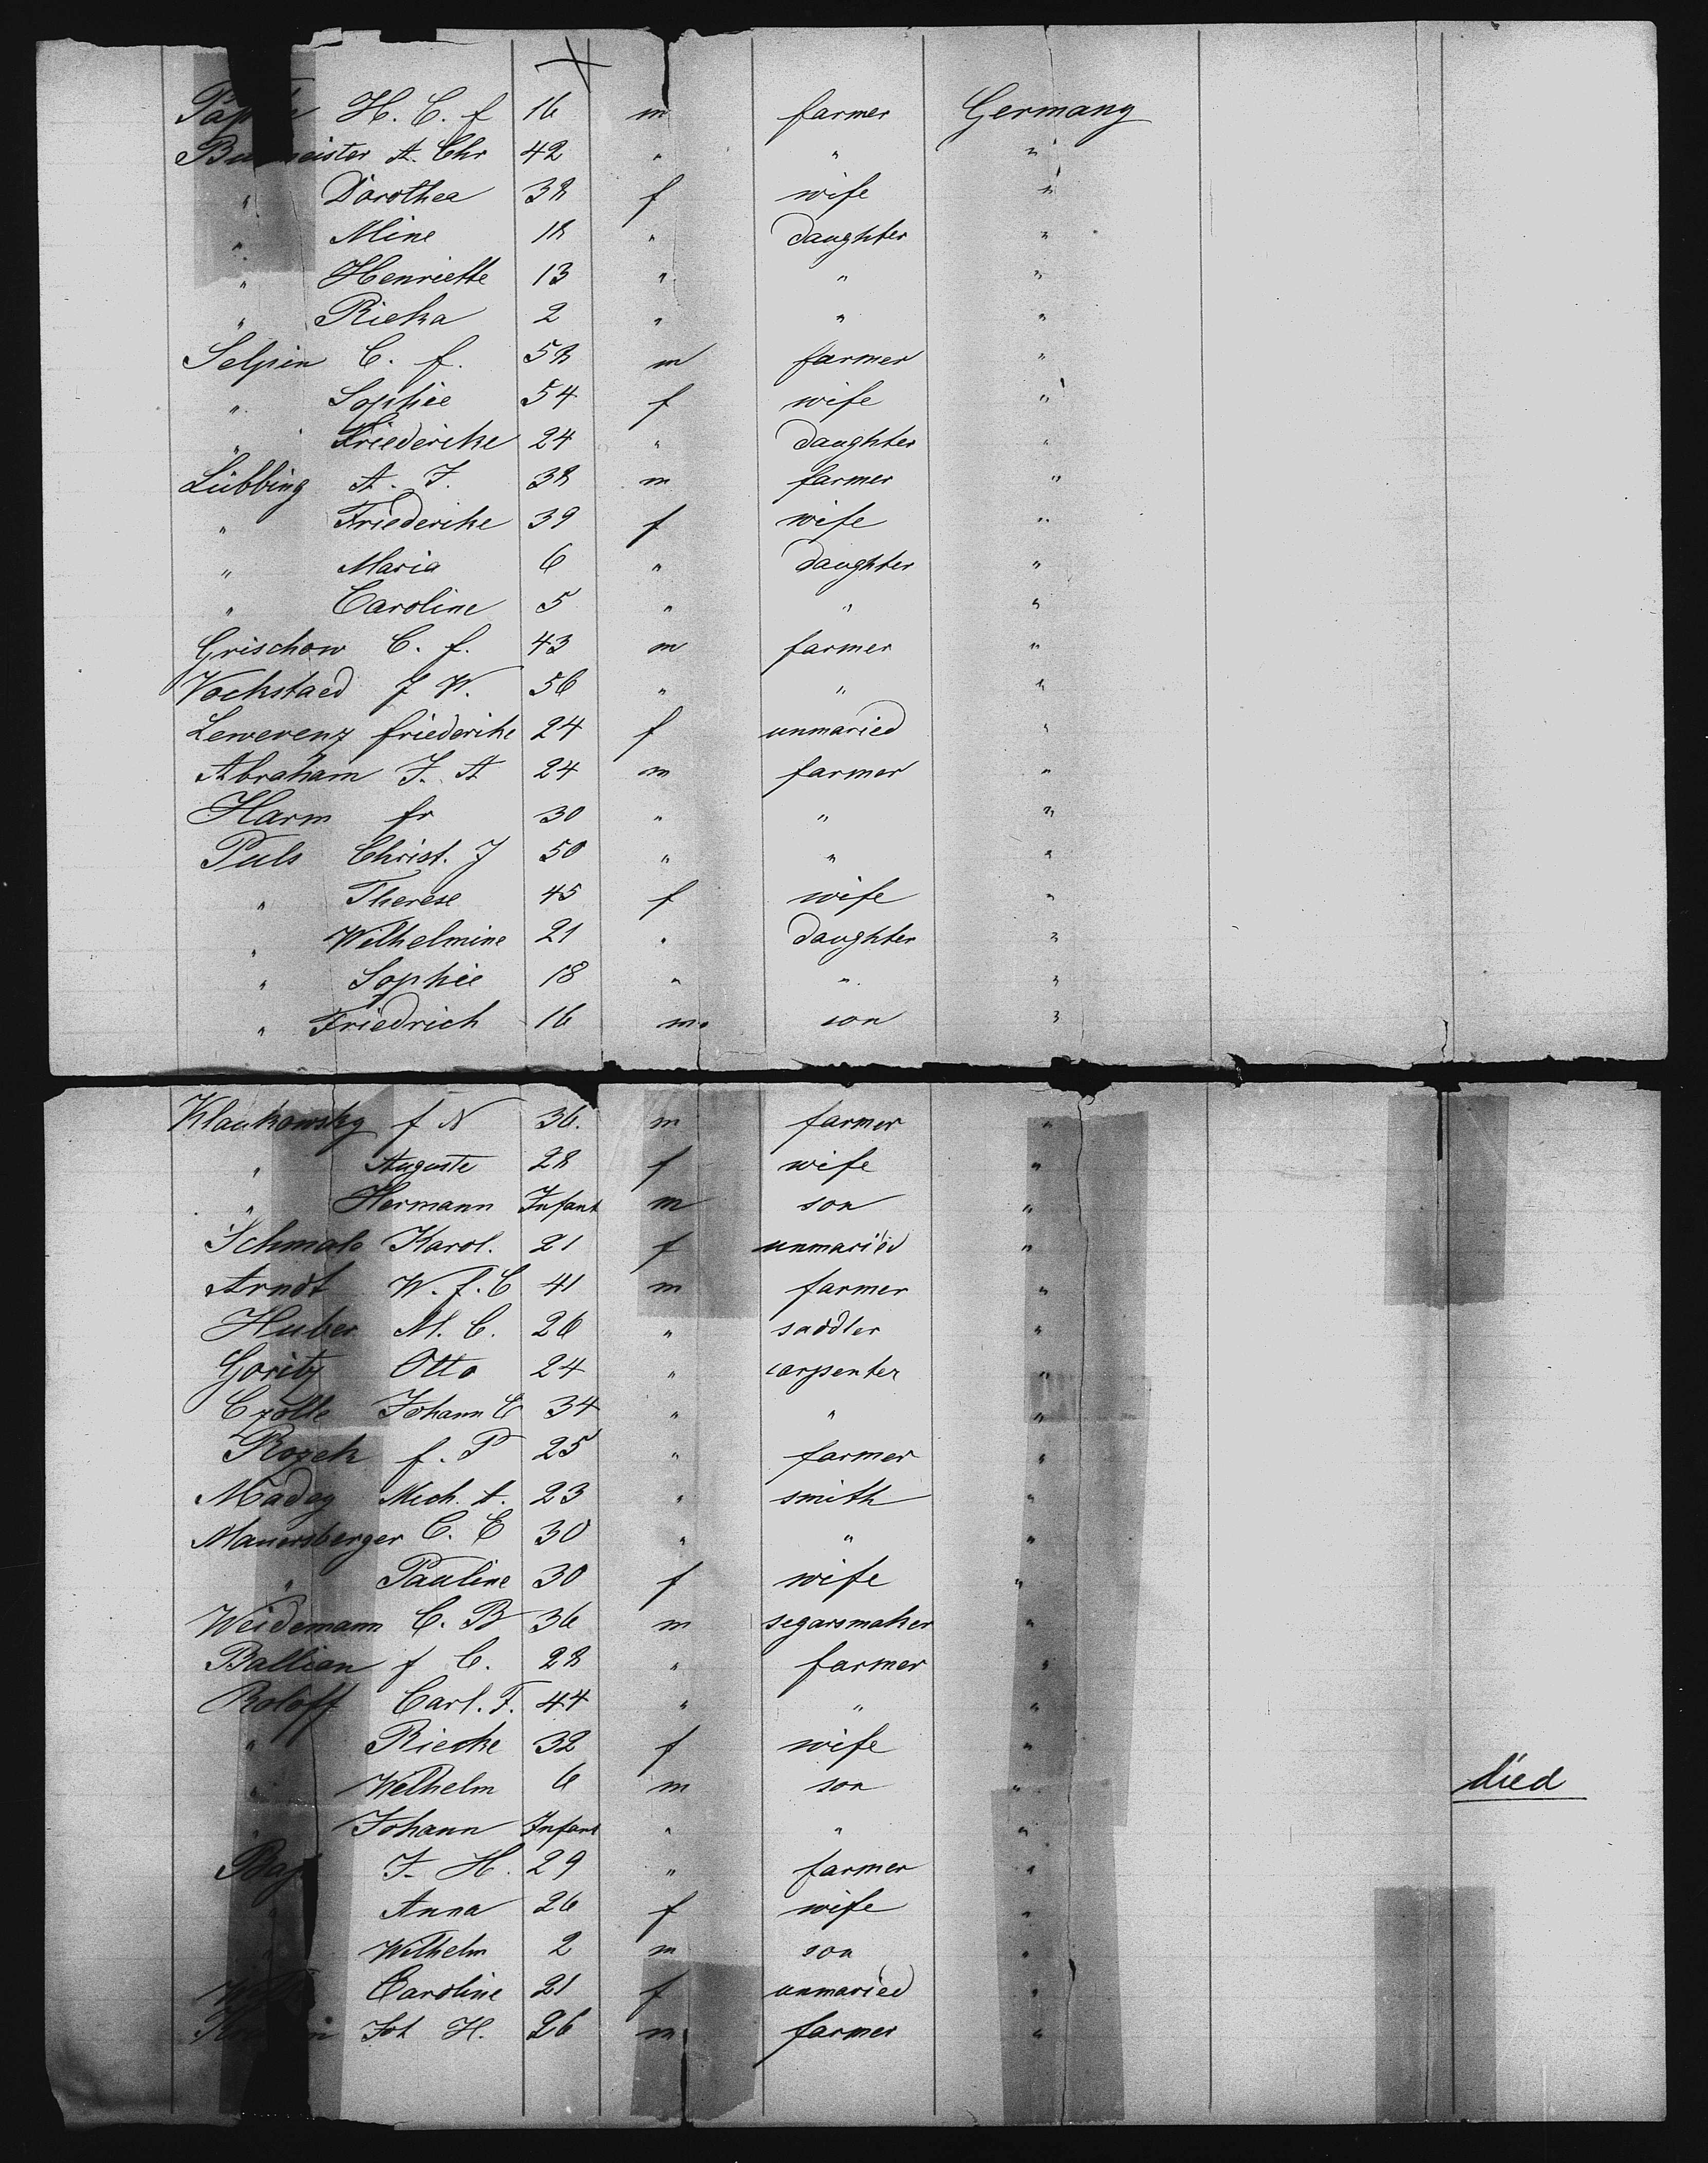 H. C. f 16 m farmer Germany
A. Chr 42 " " "
" Dorothea 38 f wife "
" Mine 18 " daughter "
" Henriette 13 " " "
" Rieka 2 " " "
Selpin C. f. 58 m farmer "
" Sophie 54 f wife "
" Friederike 24 " daughter "
Lübbing A. J. 38 m farmer "
" Friederike 39 f wife "
" Maria 6 " daughter "
" Caroline 5 " " "
Grischow C. f. 43 m farmer "
Vockstaed J W. 56 " " "
Lewerenz friederike 24 f unmaried "
Abraham J. A 24 m farmer "
Harm fr 30 " " "
Puls Christ. J 50 " " "
" Therese 45 f wife "
" Wilhelmine 21 " daughter "
" Sophie 18 " " "
" Friedrich 16 m. son "
Klaukowsky f N 36. m farmer "
" Auguste 28 f wife "
" Hermann Infant m son "
Schmals Karol. 21 f unmaried "
Arndt W. f. C 41 m farmer "
Huber M. C. 26 " saddler "
Goritz Otto 24 " carpenter "
Czolle Johann C 34 " " "
Rozek f. P 25 " farmer "
Madey Mich. A. 23 " smith "
Mauersberger C. E 30 " " "
" Pauline 30 f wife "
Weidemann C. B 36 m segarsmaker "
Ballian f C. 28 " farmer "
Roloff Carl. F. 44 " " "
" Riecke 32 f wife "
" Wilhelm 6 m son " died
" Johann Infant " " "
J. H. 29 " farmer "
" Anna 26 f wife "
" Wilhelm 2 m son "
Caroline 21 f unmaried "
Joh H. 26 m farmer "